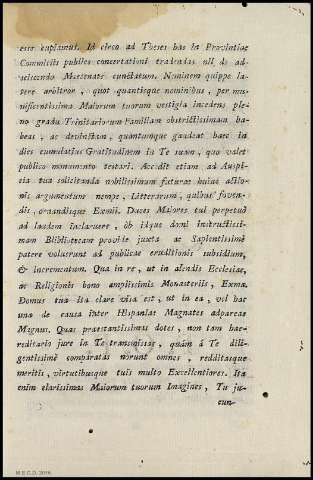 esse cupiamus. Id circo ad Theses has in Provintiae
Commitiis publicè concertationi tradendas nll de ad-
sciscendo Maecenate cunctatum. Neminem quippe la-
tere arbitror, quot quantisque nominibus, per mu-
nificentissima Maiorum tuorum vestigia incedens, ple-
no gradu Trinitariorum Familiam obstrictissimam ha-
beas, ac devinctam, quantumque gaudeat haec in
dies cumulatius Gratitudinem in Te suam, quo valet
publico monumento testari. Accedit etiam ad Auspi-
cia tua solicitanda nobilissimum futurae huius actio-
nis argumentum nempe, Litterarum, quibus foven-
dis, ornandisque Exmii. Duces Maiores tui perpetuò
ad laudem inclaruere, ob idque domi instructissi-
mam Bibliothecam providè juxta ac Sapientissimè
patere voluerunt ad publicae eruditionis subsidium,
& incrementum. Qua in re, ut in alendis Ecclesiae,
ac Religionis bono amplissimis Monasteriis, Exma.
Domus tua ita clare visa est, ut in ea, vel hac
una de causa inter Hispaniae Magnates adpareas
Magnus. Quas praestantissimas dotes, non tam hae-
reditario jure in Te transmissas, quám á Te dili-
gentissimè comparatas norunt omnes, redditasque
meritis, virtutibusque tuis multo Excellentiores. Ita
enim clarissimas Maiorum tuorum Imagines, Tu ju-
cun-
M.E.C.D. 2016